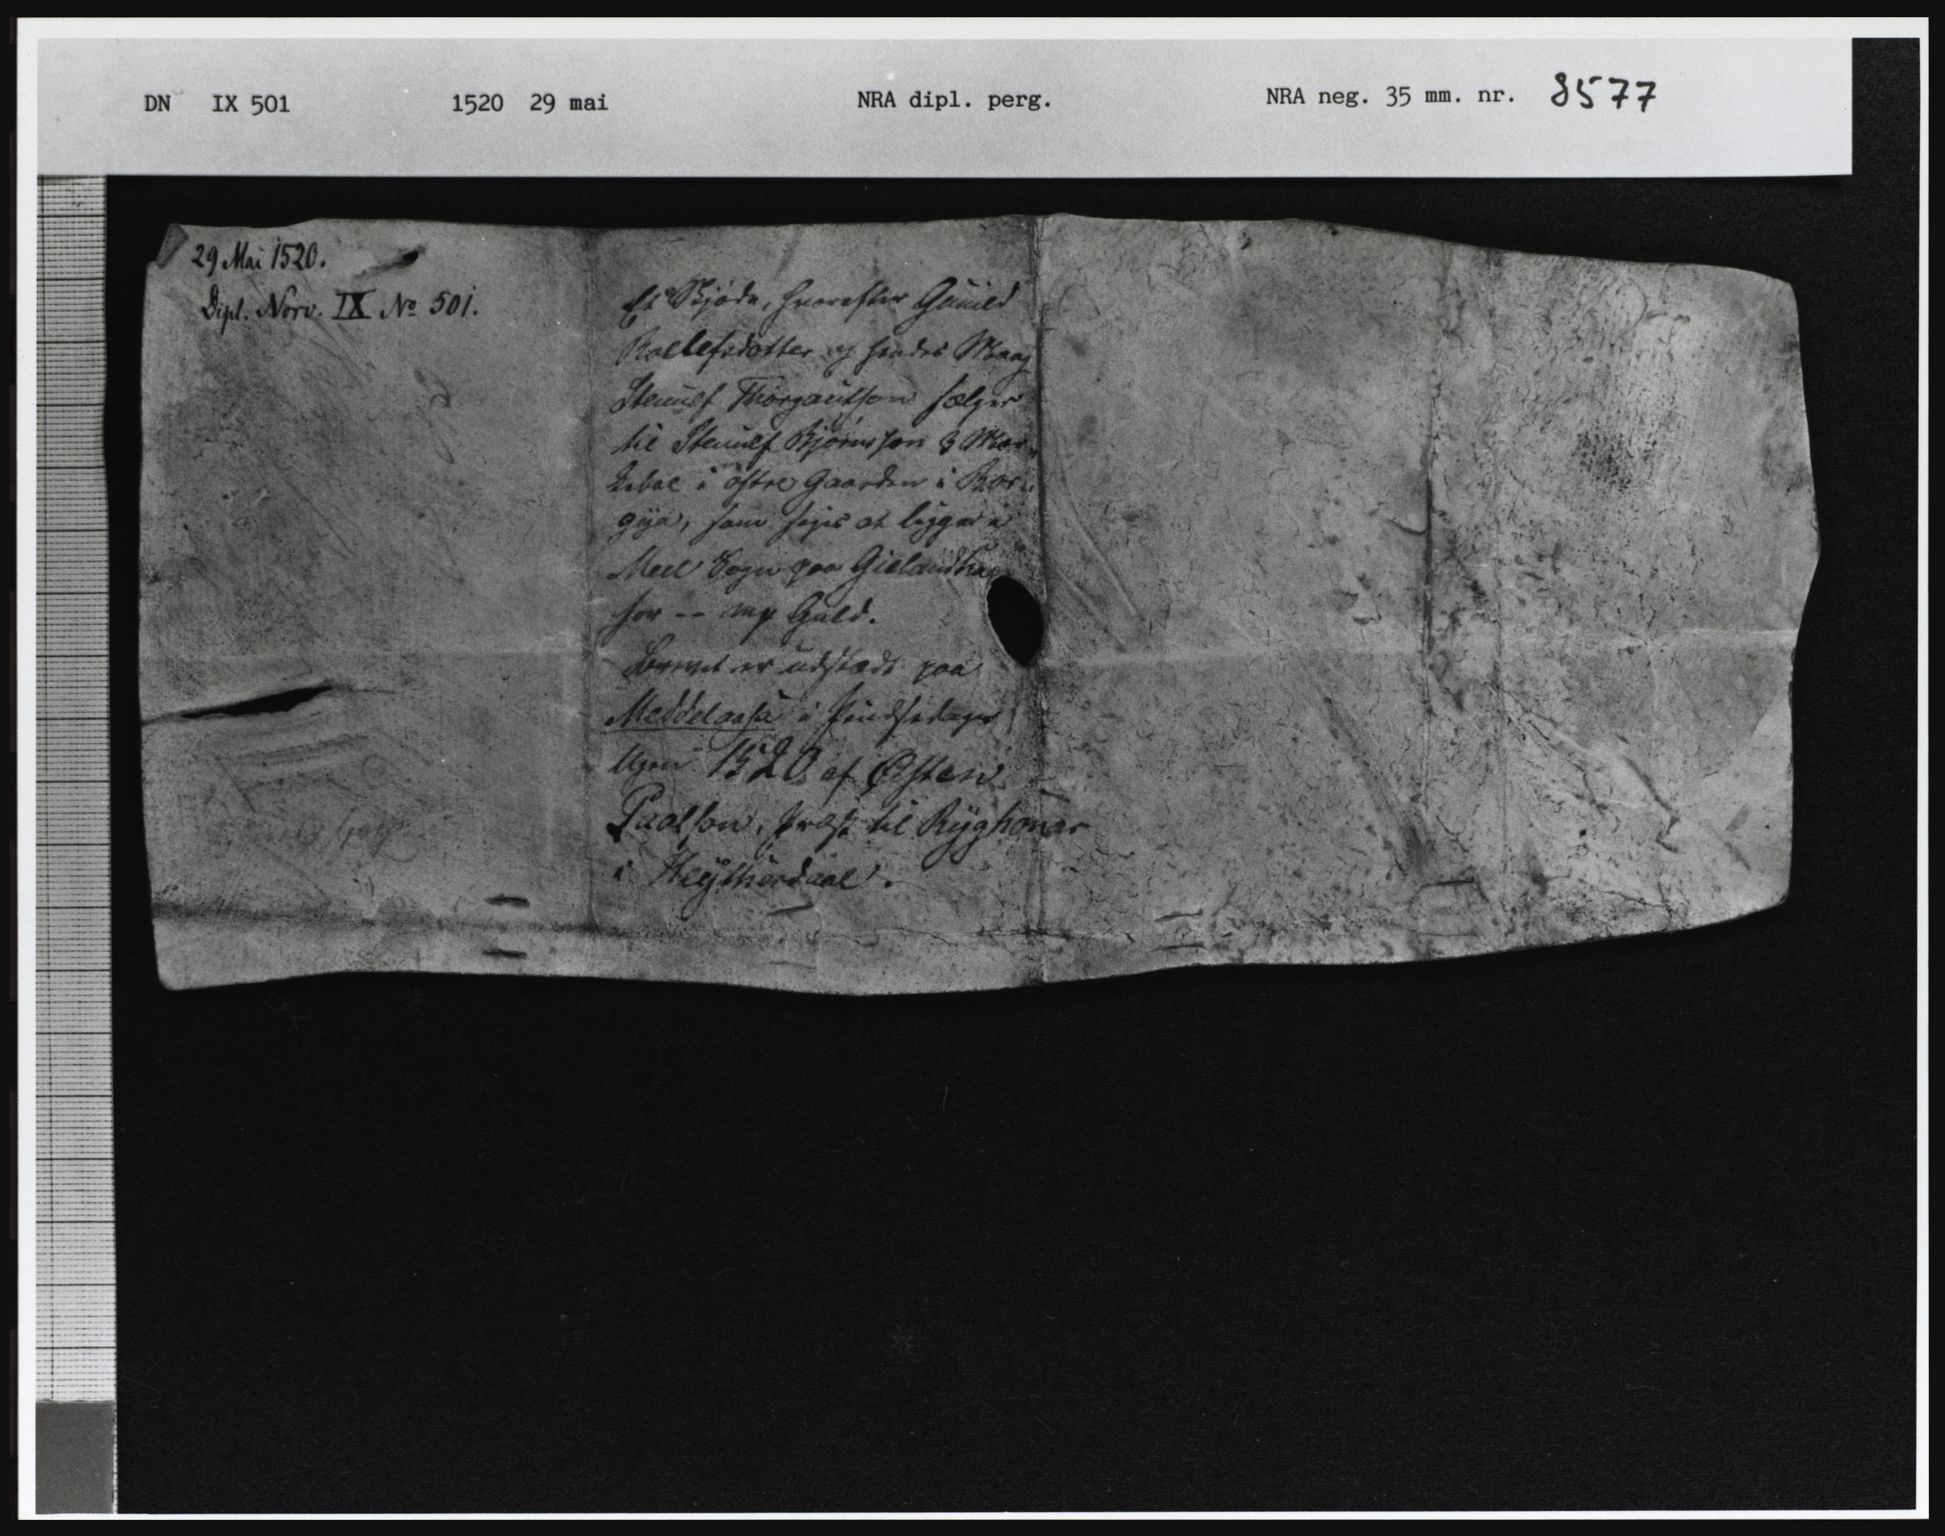 DN IX 501 1520 29 mai NRA dipl. perg. NRA neg. 35 mm. nr. 8577
29 Mai 1520.
Dipl. Norv. IX No 501.
Et Skjøde, hvorefter Gunild
Roelefsdotter og hendes Maag
Stenulf Thorgautson sælger
til Stenulf Bjørnsson 3 Mar
kebol i østre Gaarden i Bor
gija, som siges at ligge i
Meel Sogn paa Gielandha
for -- mp Guld.
Brevet er udstædt paa
Meddelaasa i Pindsedager
Ugen 1520 af Østen
Paalson, Præst til Ryghonar
i Heytherdaal.